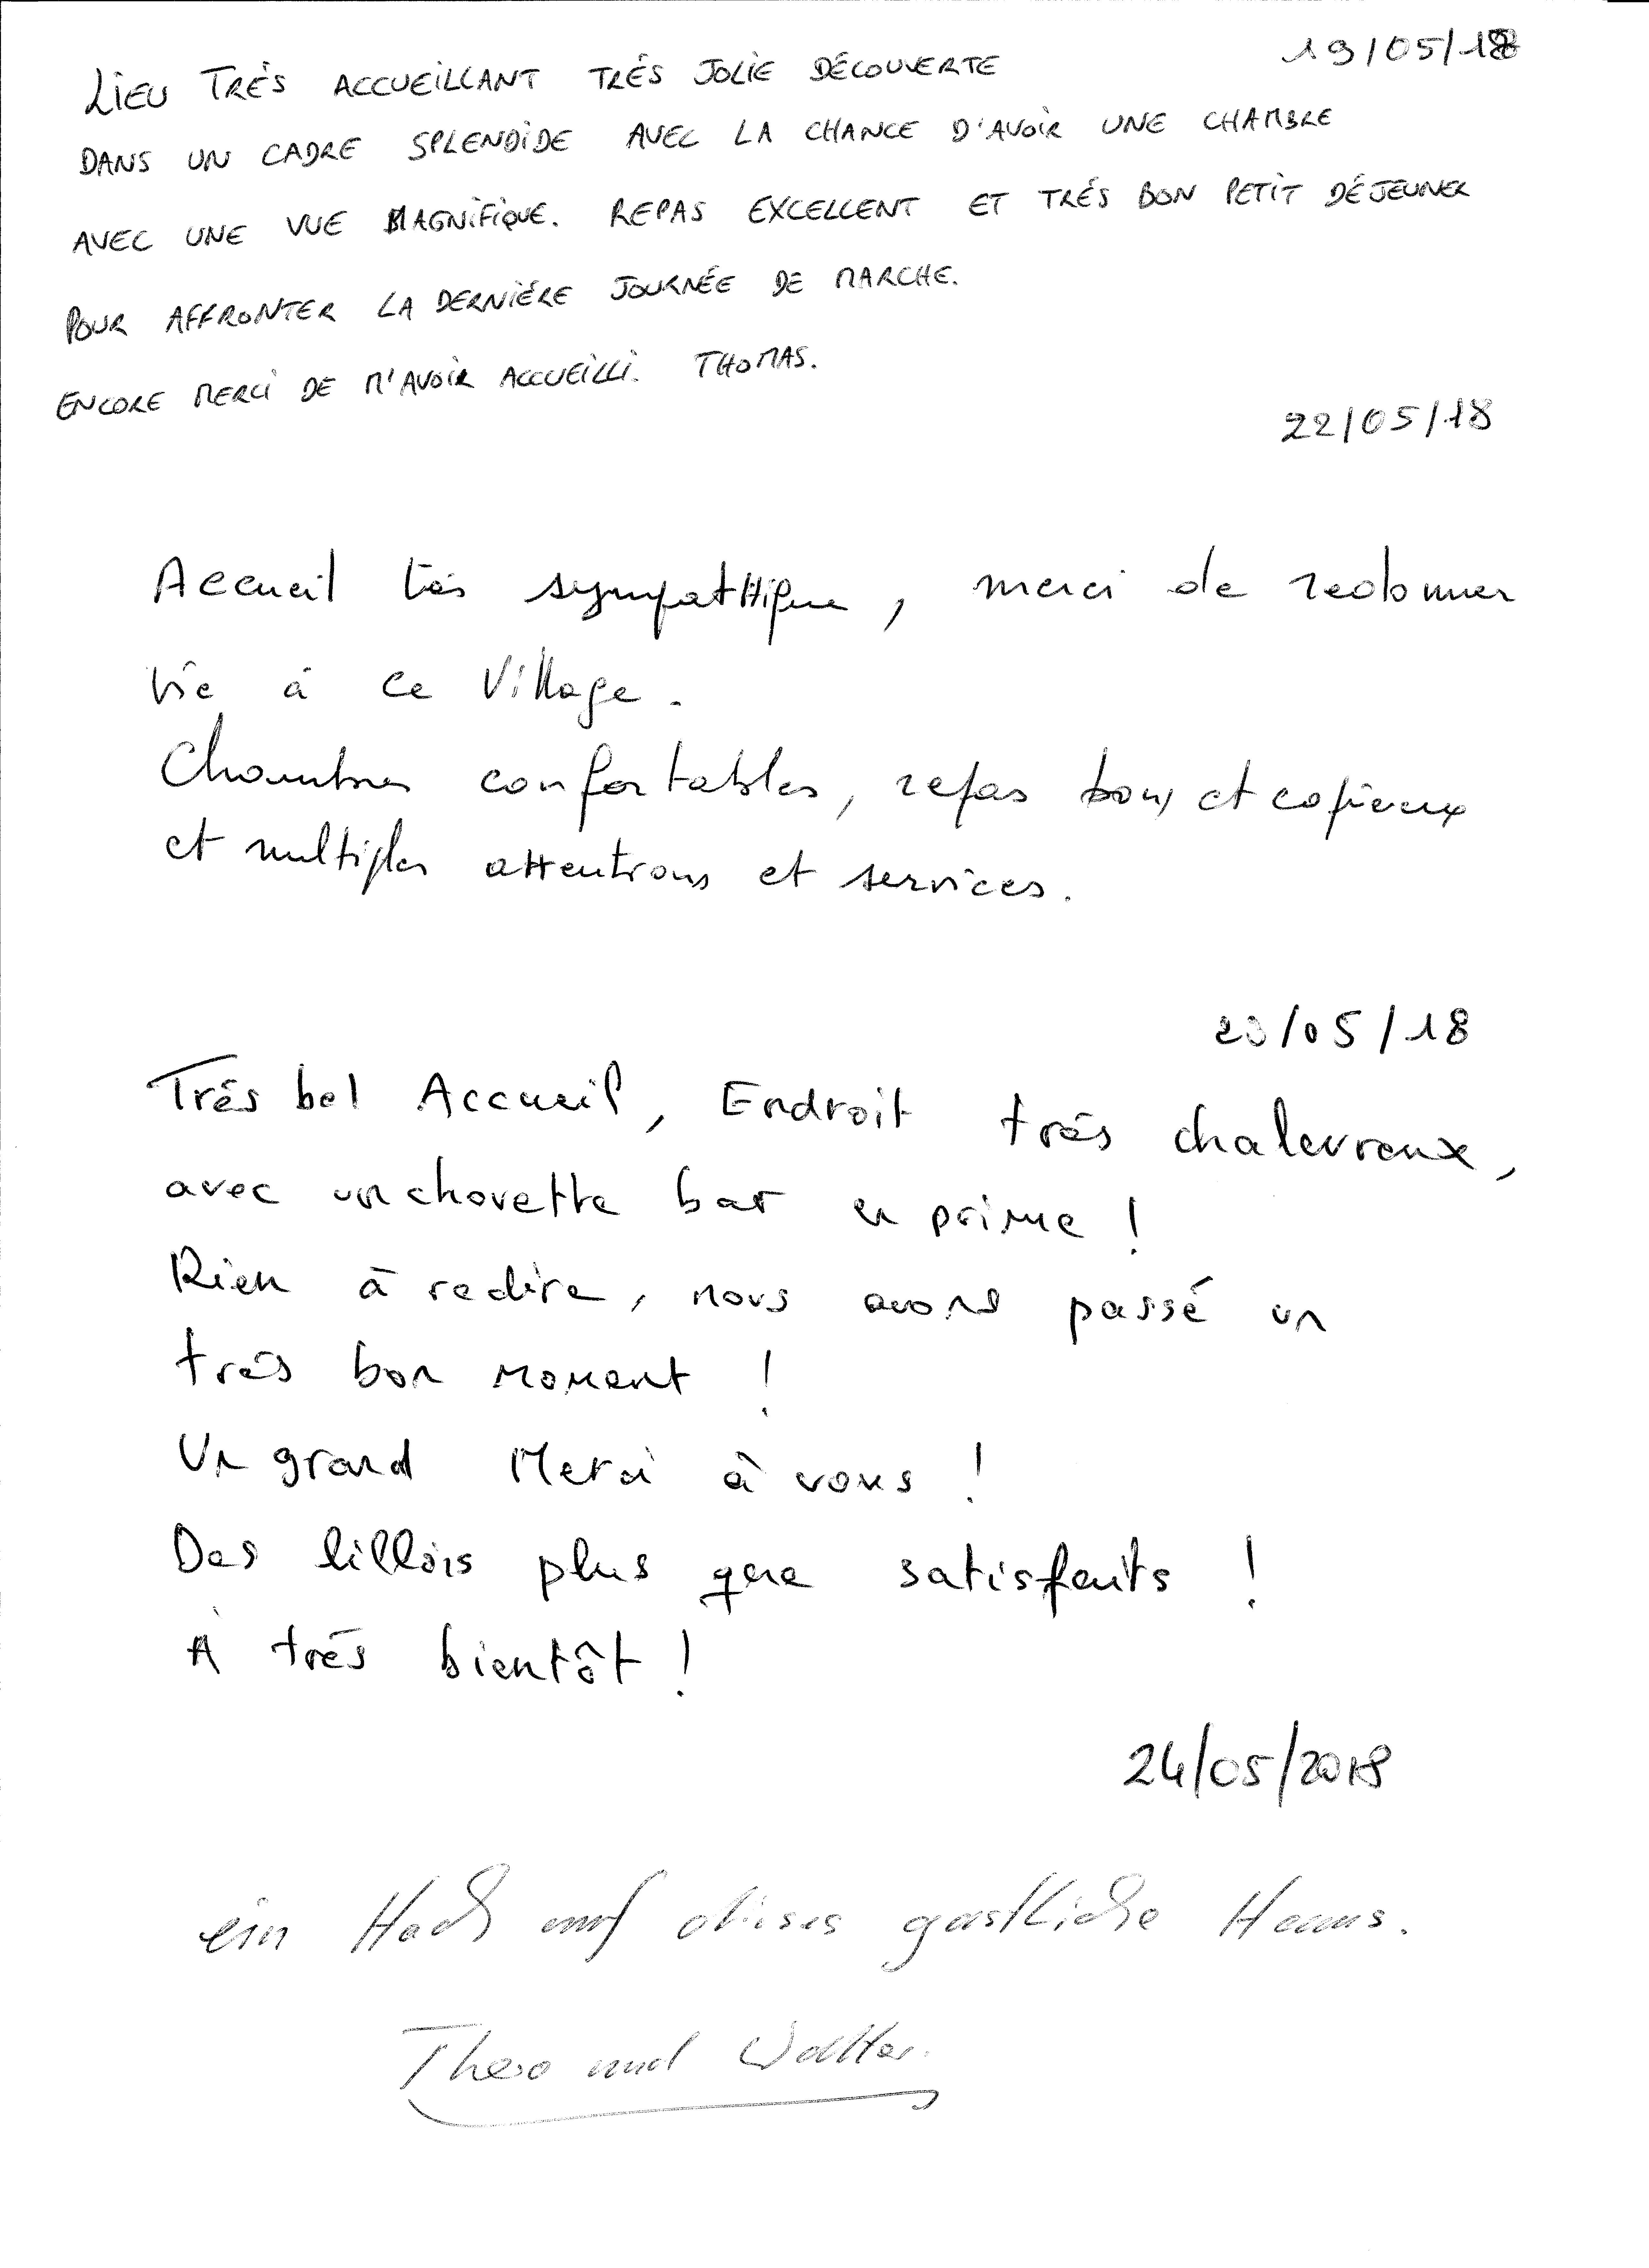 19/05/18
LIEU TRÉS ACCUEILLANT TRÉS JOLIE DÉCOUVERTE
DANS UN CADRE SPLENDIDE AVEC LA CHANCE D'AVOIR UNE CHAMBRE
AVEC UNE VUE MAGNIFIQUE. REPAS EXCELLENT ET TRÉS BON PETIT DÉJEUNER
POUR AFFRONTER LA DERNIÉRE JOURNÉE DE MARCHE.
ENCORE MERCI DE M'AVOIR ACCUEILLI. THOMAS.
22/05/18
Accueil très sympathique, merci de redonner
vie à ce village.
Chambres confortables, repas bons et copieux
et multiples attentions et services.
23/05/18
Trés bel Accueil, Endroit trés chaleureux,
avec un chouette bar en prime !
Rien à redire, nous avons passé un
trés bon moment !
Un grand Merci à vous !
Des lillois plus que satisfaits !
À trés bientôt !
24/05/2018
ein Hoch auf dieses gastliche Haus.
Theo und Walter.